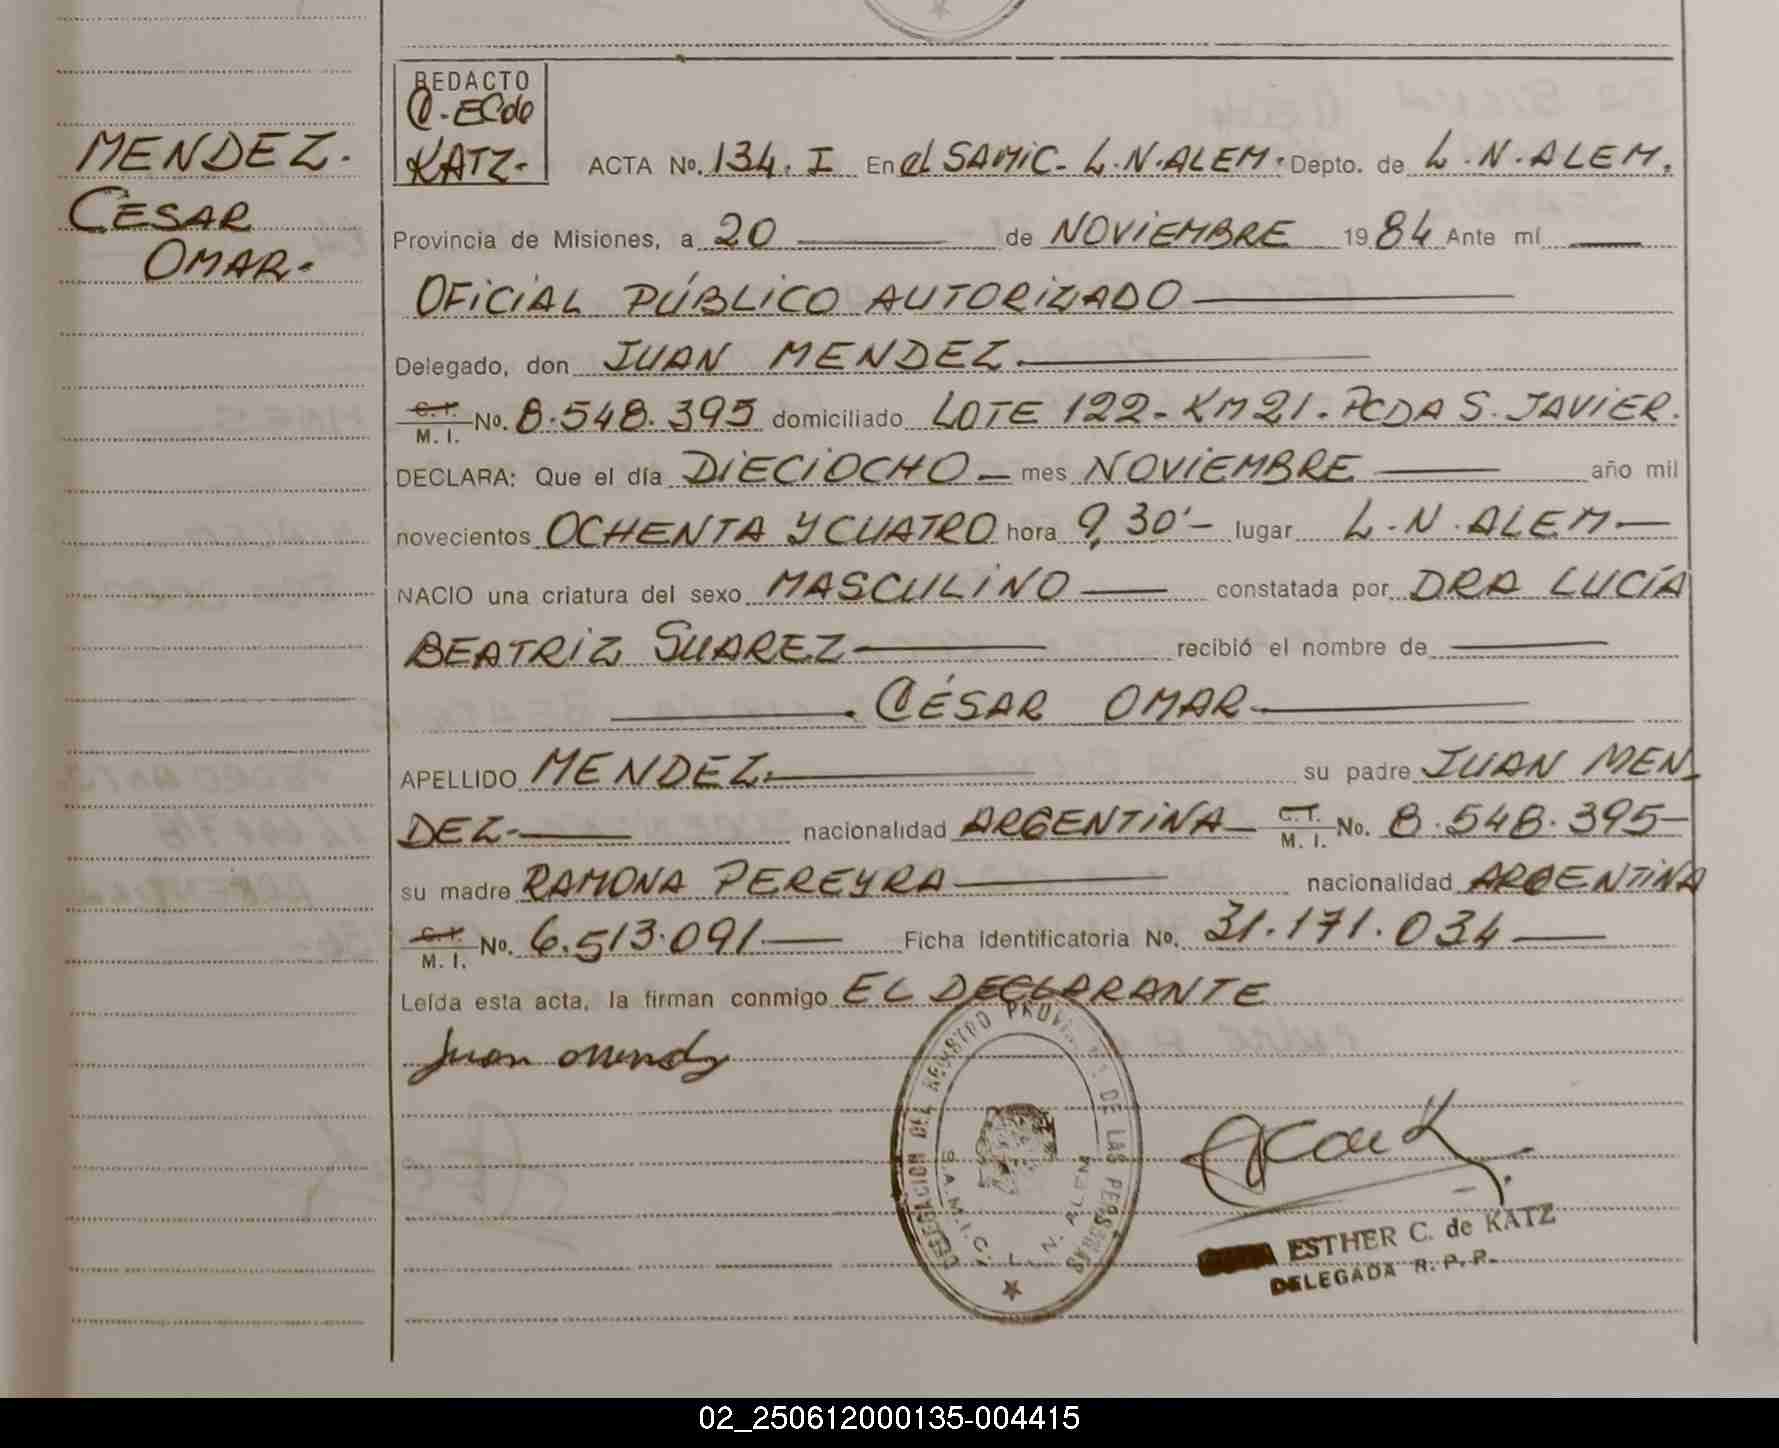 MENDEZ.
CESAR
OMAR.
REDACTO
KATZ.
ACTA No. 134. I En el SAMIC- L.N.ALEM. Depto. de L.N.ALEM.
Provincia de Misiones, a 20 de NOViEMBRE 1984 Ante mí
OFiCiAL PÚBLiCO AUTORiZADO
Delegado, don JUAN MENDEZ
C.I.
M. I. No. 8.548.395 domiciliado LOTE 122- KM21. PCDA S. JAVIER.
DECLARA: Que el día DiECiOCHO mes NOViEMBRE año mil
novecientos OCHENTA Y CUATRO hora 9,30'- lugar L.N.ALEM
NACIO una criatura del sexo MASCULiNO constatada por DRA LUCÍA
BEATRiZ SUAREZ recibió el nombre de
CÉSAR OMAR
APELLIDO MENDEZ su padre JUAN MEN_
DEZ. nacionalidad ARGENTiNA C.I.
M. I. No. 8.548.395
su madre RAMONA PEREYRA nacionalidad ARGENTiNA
C.I.
M. I. No. 6.513.091 Ficha identificatoria No. 31.171.034
Leída esta acta, la firman conmigo EL DECLARANTE
Juan Mendez
DELEGACION DEL REGISTRO PROVINCIAL DE LAS PERSONAS
S.A.M.I.C. L. N. ALEM
ESTHER C. de KATZ
DELEGADA R. P. P.
02_250612000135-004415